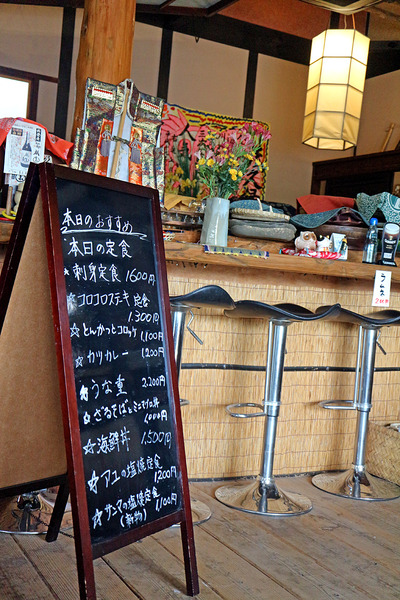 本日のおすすめ
本日の定食
★刺身定食 1600円
コロコロステーキ定食
1.300円
☆とんかつとコロッケ
1,100円
☆カツカレー 1200円
☆うな重 2.200円
☆ざるそば&ミニマグロ丼
1,000円
☆海鮮丼 1,500円
☆アユの塩焼定食
1200円
☆サンマの塩焼定食
(新物) 1,100円
ラムネ